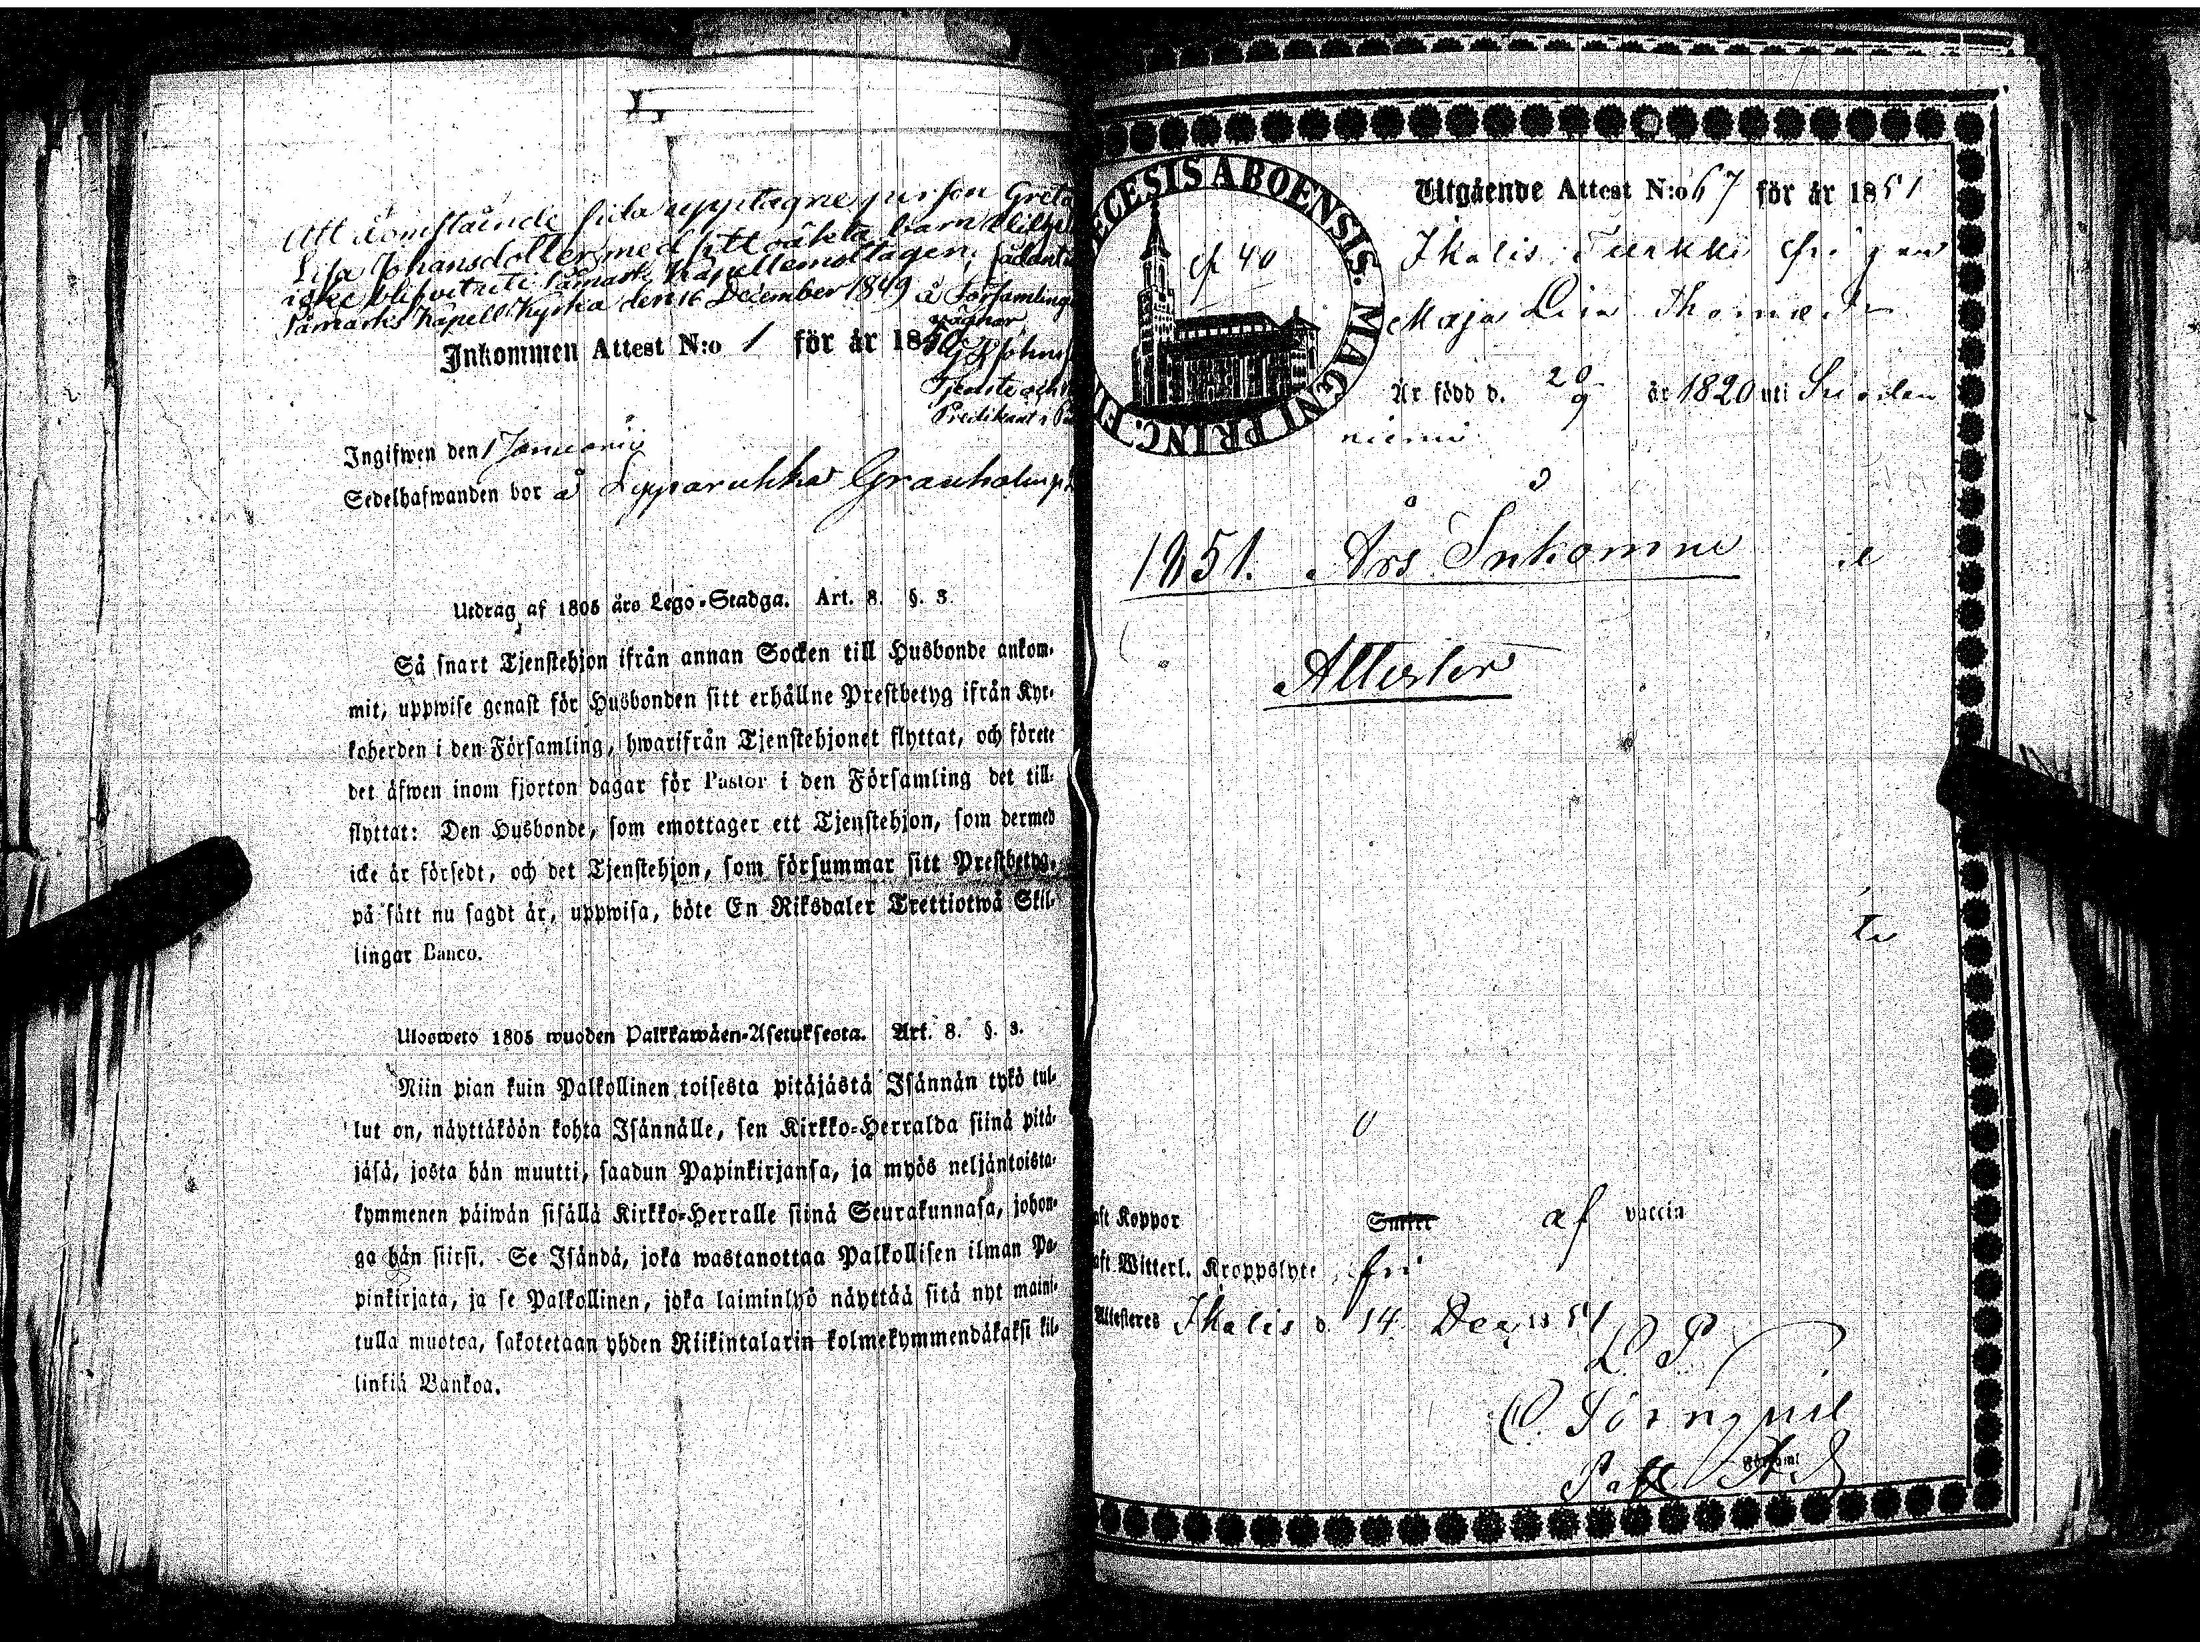 Att å omstående sida upptagne person Greta
Lisa Johansdotter med sitt oäkta barn
icke blifvit uti Påmark Kapell emottagen; sådant
Påmarks Kapell Kyrka den 16 December 1849 å Församlingens
vägnar
Inkommen Attest N:o 1 för år 1850
Predikant i
Ingifwen den 1 Januarii
Sedelhafwanden bor å Lepparukka
Utdrag af 1805 års Lego-Stadga. Art. 8. §. 3.
Så snart Tjenstehjon ifrån annan Socken till Husbonde ankom-
mit, uppwise genast för Husbonden sitt erhållne Prestbetyg ifrån Kyr-
koherden i den Församling, hwarifrån Tjenstehjonet flyttat, och förete
det äfwen inom fjorton dagar för Pastor i den Församling det till-
flyttat: Den Husbonde, som emottager ett Tjenstehjon, som dermed
icke är försedt, och det Tjenstehjon, som försummar sitt Prestbetyg,
på sätt nu sagdt är, uppwisa, böte En Riksdaler Trettiotwå Skil-
lingar Banco.
Ulosweto 1805 wuoden Palkkawäen-Asetuksesta. Art. 8. §. 3.
Niin pian kuin Palkollinen toisesta pitäjästä Isännän tykö tul-
lut on, näyttäköön kohta Isännälle, sen Kirkko-Herralda siinä pitä-
jäsä, josta hän muutti, saadun Papinkirjansa, ja myös neljäntoista-
kymmenen päiwän sisällä Kirkko-Herralle siinä Seurakunnasa, johon-
ga hän siirsi. Se Isändä, joka wastanottaa Palkollisen ilman Pa-
pinkirjata, ja se Palkollinen, joka laiminlyö näyttää sitä nyt maini-
tulla muotoa, sakotetaan yhden Riikintalarin kolmekymmendäkaksi kil-
linkiä Bankoa.
ECESIS ABOENSIS. MAGNI PRINC.
Utgående Attest N:o 67 för år 1851
Ikalis
Maja Lisa
Är född d. 20/9 år 1820 uti
niemi
1851. Års Inkomne
Attester
Koppor af vaccin
Witterl. Kroppslyte fri
Attesteras Ikalis d. 14 Dec 1851